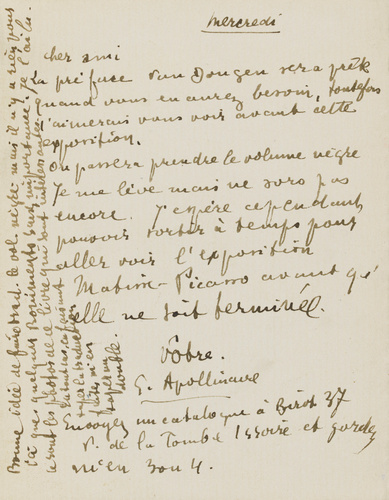 Mercredi
cher ami
La préface Van Dongen sera prête
quand vous en aurez besoin, toutefois
j'aimerais vous voir avant cette
exposition.
On passera prendre le volume nègre
Je me lève mais ne sors pas
encore. J'espère cependant
pouvoir sortir à temps pour
aller voir l'exposition
Matisse-Picasso avant qu'
elle ne soit terminée.
Votre
G. Apollinaire
Envoyez un catalogue à Birot 37
r. de la Tombe Issoire et gardez
m'en 3 ou 4.
Bonne idée de faire le vol. nègre mais il n'y a rien, vous
n'ai que quelques importance, je l'ai lu.
ce sont les photos de ce livre qui sont intéressantes
double.